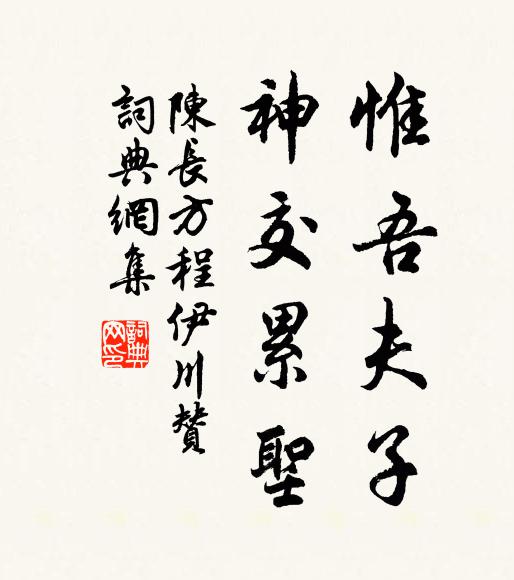 惟吾夫子
神交累聖
陳長方程伊川贊
詞典網集
詞典网印